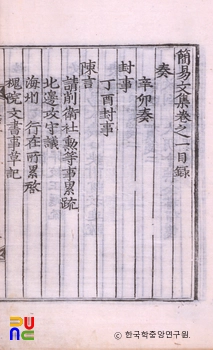 簡易文集卷之一目錄
奏
辛卯奏
封事
丁酉封事
陳言
請削衛社勳等事累疏
北邊攻守議
海州 行在所累啓
槐院文書事草記
PUNC
© 한국학중앙연구원.